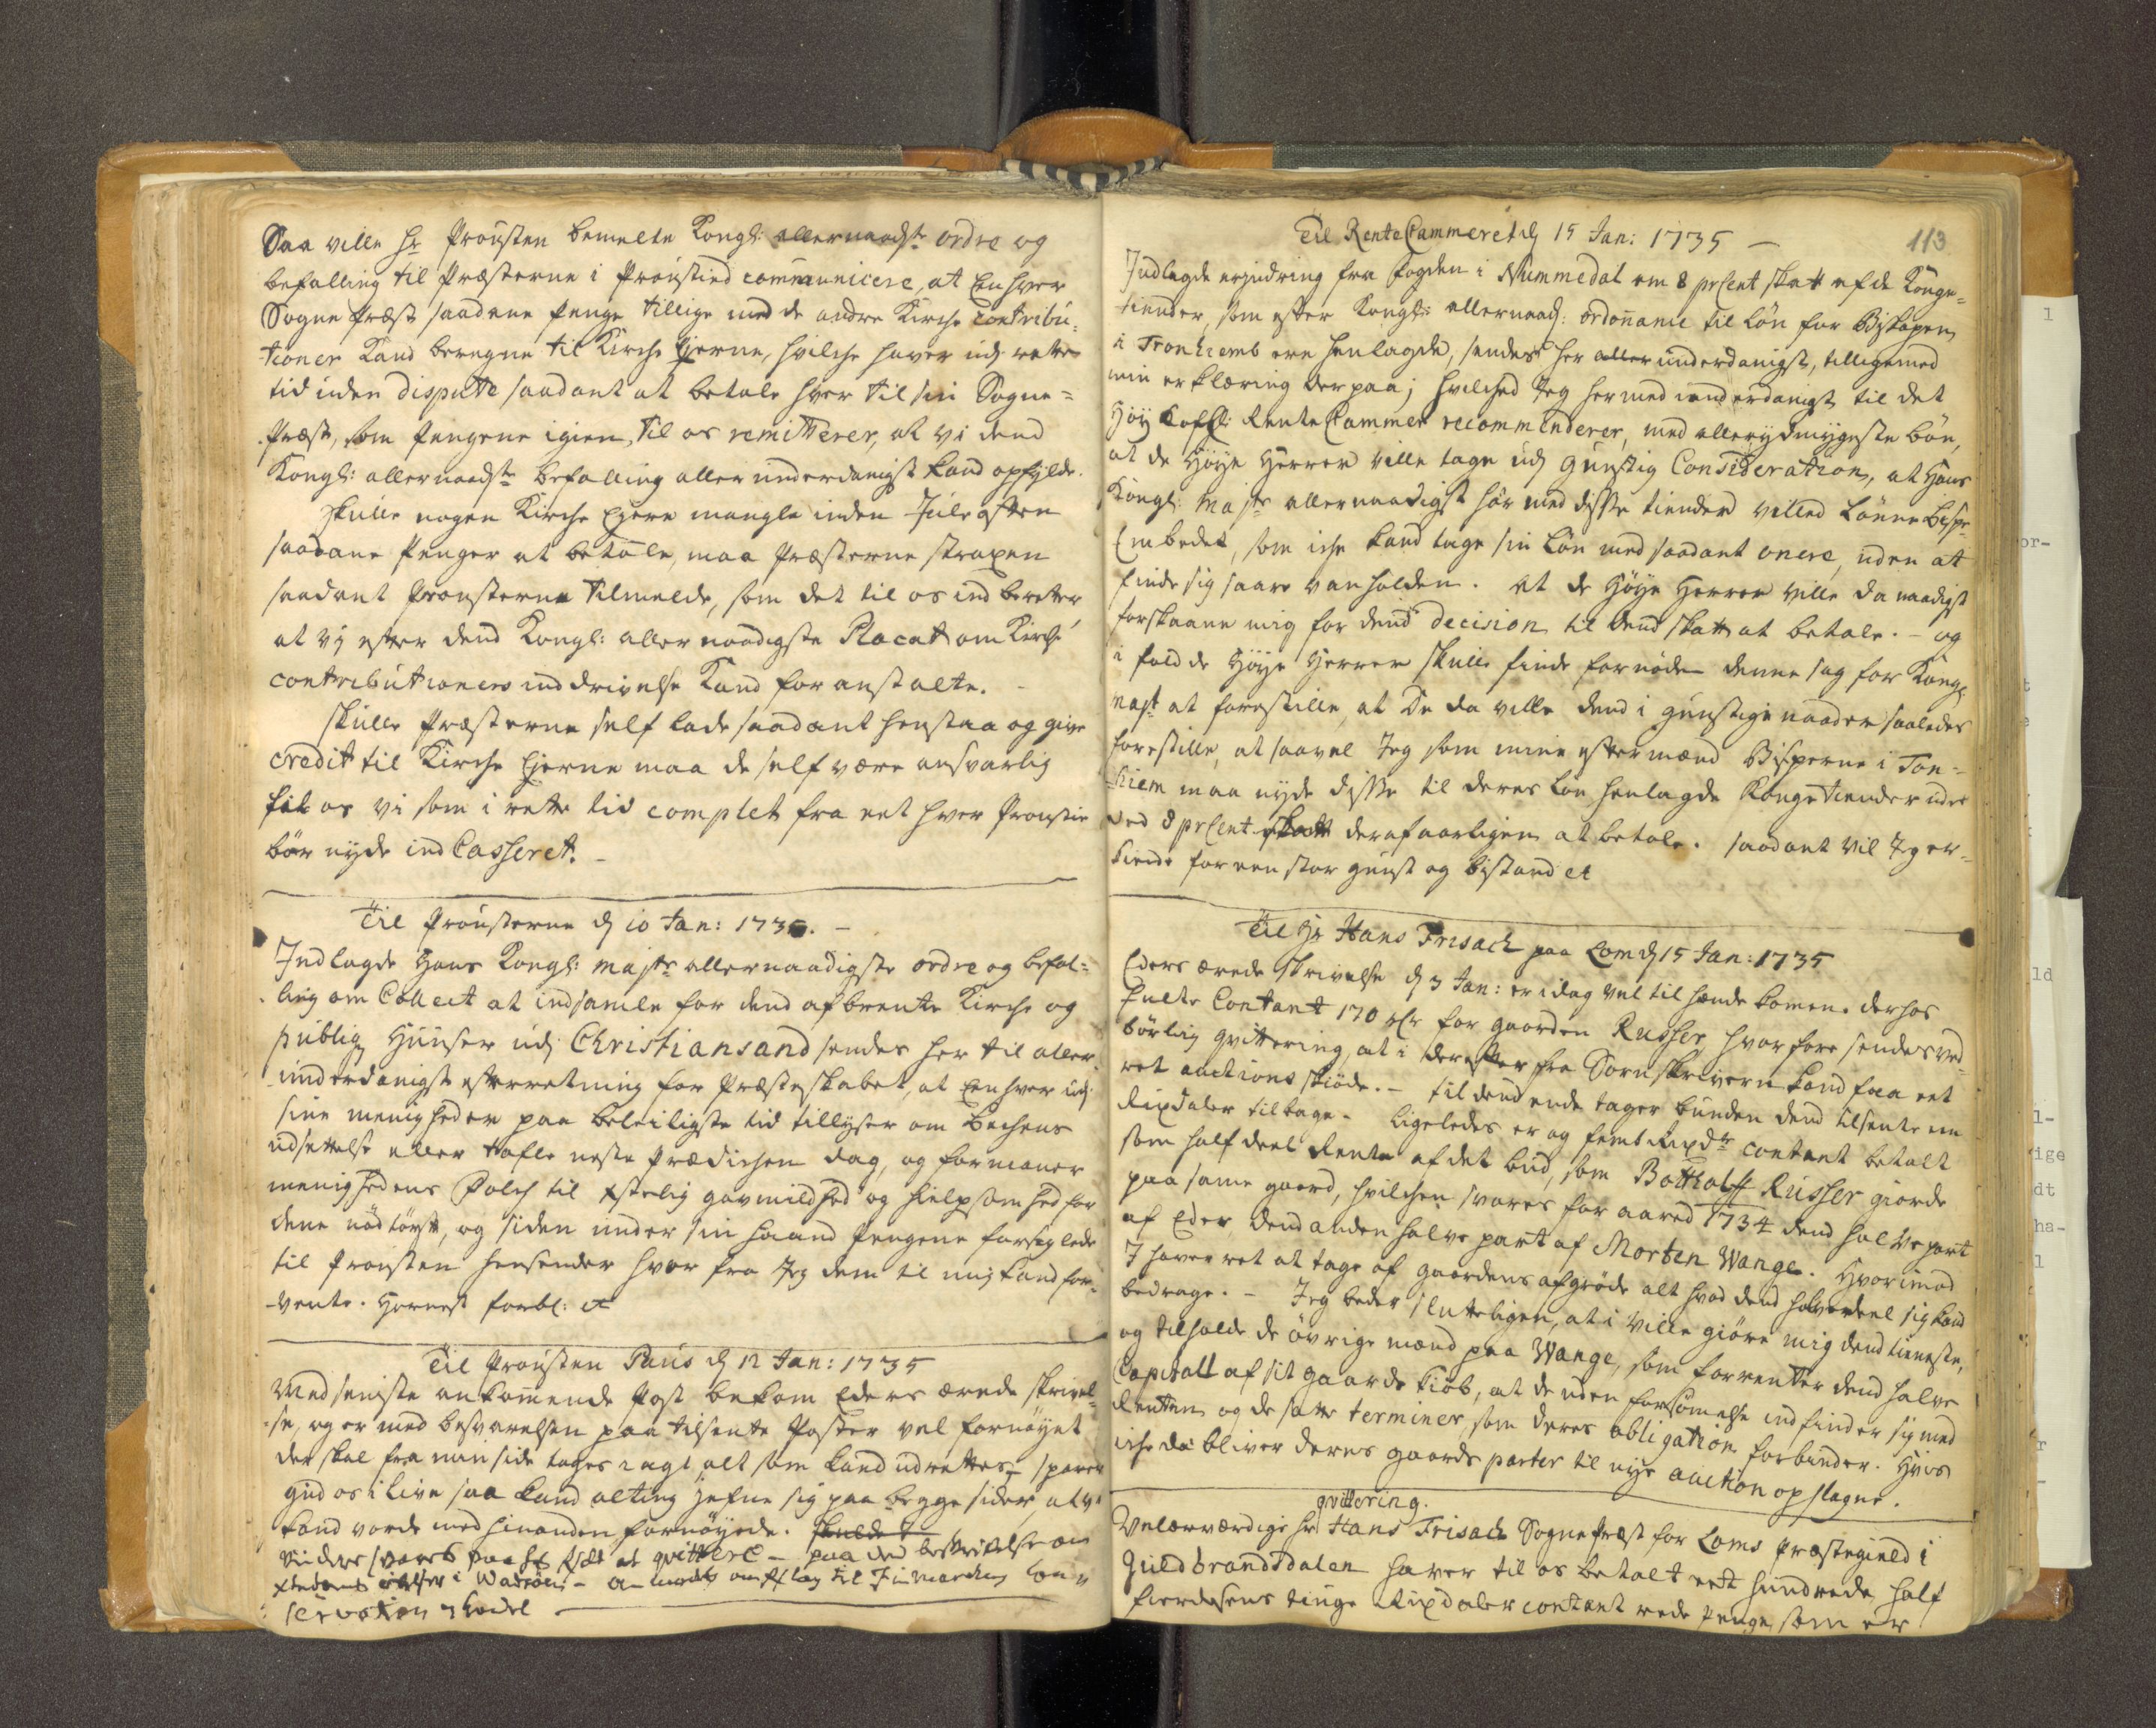 Saa ville Hr Prousten bemelte Kongl: allernaadste ordre og
befalling til Præsterne i Proustied communicere, at Enhver
Sogne Præst saadane Penge tillige med de andre Kirche contribu-
tioner kand beregne til Kirche Ejerne, hvilche haver udj rette
tid uden dispute saadant at betale hver til sin Sogne-
Præst, som Pengene igien til os remitterer, at vi dend
Kongl: allernaadste befalling allerunderdanigst kand opfylde.
Skulle nogen Kirche Ejere mangle inden Jule aften
saadane Penger at betale, maa Præsterne straxen
saadant Prousterne tilmelde, som det til os indberetter,
at vj efter dend Kongl: allernaadigste Placat om Kirche
contributioners inddrivelse kand foranstalte. -
Skulle Præsterne self lade saadant henstaa og give
credit til Kirche Ejerne maa de self være ansvarlig
til os vi som i rette tid complet fra eet hver Proustie
bør nyde ind Casseret. -
Til Prousterne dj 10 Jan: 1735. -
Indlagde Hans Kongl: Majsts allernaadigste ordre og befal-
ling om Collect at indsamle for dend afbrente Kirche og
publiq Huuser udj Christiansand sendes her til aller-
underdanigst efterretning for Præsteskabet, at Enhver udj
sine menigheder paa beleiligste tid tillyser om Bechens
udsettelse eller Tafle neste Prædichen dag, og formaner
menighedens Folch til Xstelig gavmildhed og hielpsomhed for
dene nødtørft, og siden under sin haand Pengene forseglede
til Prousten hensender hvor fra Jeg dem til mig kand for-
vente. Hernest forbl: etc
Til Prousten Paus dj 12 Jan: 1735
Med seniste ankommende Post bekom Eders ærede skrivel-
se, og er med besvarelsen paa tilsente Poster vel fornøyet
der skal fra min side tages i agt alt som kand udrettes, sparer
Gud os i live saa kand alting jefne sig paa begge sider, at vi
kand vorde med hinanden fornøyede.
at qvittere - paa
i Wadsøen - til Finmarchen
113
Til Rente Cammeret dj 15 Jan: 1735 -
Indlagde erindring fra Fogden i Nummedal om 8 prCent skatt af de Konge-
tiender, som efter Kongl: allernaad: ordonance til Løn for Biskopen
i Tronhiemb ere henlagde, sendes her allerunderdanigst, tilligemed
min erklæring derpaa; hvilchet Jeg hermed underdanigst til det
Høy Lofl: Rente Cammer recommenderer, med allerydmygeste bøn,
at de Høye Herrer ville tage udj gunstig Consideration, at Hans
Kongl: Majst allernaadigst har med disse tiender villed Lønne bispe
Embedet, som iche kand tage sin Løn med saadant onere, uden at
finde sig saare vanholden. At de Høye Herrer ville da naadigst
forskaane mig for dend decision til dend skatt at betale. - og
i fald de Høye Herrer skulle finde fornøden denne sag for Kongl
Majst at forestille, at De da ville dend i gunstige naader saaledes
forestille, at saavel Jeg som mine eftermænd Bisperne i Tron-
hiem maa nyde disse til deres Løn henlagde Kongetiender uden
ved 8 prCent skatt deraf aarligen at betale. Saadant vil Jeg er-
kiende for een stor gunst og bistand etc
Til Hr Hans Frisach paa Lom dj 15 Jan: 1735
Eders ærede skrivelse dj 3 Jan: er i dag vel til hænde komen. derhos
fulte Contant 170 rdr for gaarden Russer hvorfore sendes ved
børlig qvittering, at i derefter fra Sorenskriveren kand faa eet
ret auctions skiøde. - til dend ende tager bunden dend tilsente een
Rixdaler tilbage. Ligeledes er og femb Rixdr contant betalt
som half deel Rente af det bud, som Bottholff Russer giorde
paa same gaard, hvilchen svares for aared 1734 dend halve part
af Eder dend anden halve part af Morten Wange. Hvorimod
I haver ret at tage af gaardens afgrøde alt hvad dend halvedeel sig kand
bedrage. - Jeg beder slutteligen, at i ville giøre mig dend tieneste,
og tilholde de øvrige mænd paa Wange, som forrenter dend halve
Capitall af sit gaards kiøb, at de uden forsømelse indfinder sig med
Renten og de satte terminer, som deres obligation forbinder. Hvis
iche da bliver deres gaards parter til nye auction opslagne.
qvittering.
Velærværdige Hr Hans Frisach Sognepræst for Loms Præstegield i
Guldbrandsdalen haver til os betalt eet hundrede half
fierdesens tiuge Rixdaler contant rede Penge, som er